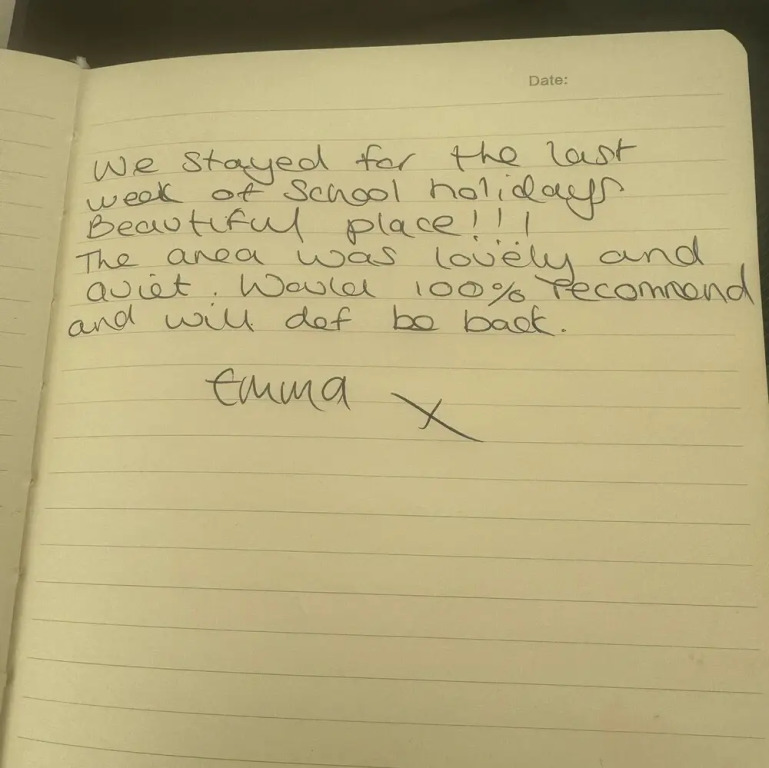 Date:
We stayed for the last
week of School holidays
Beautiful place!!!
The area was lovely and
quiet. Would 100% recommend
and will def be back.
Emma X